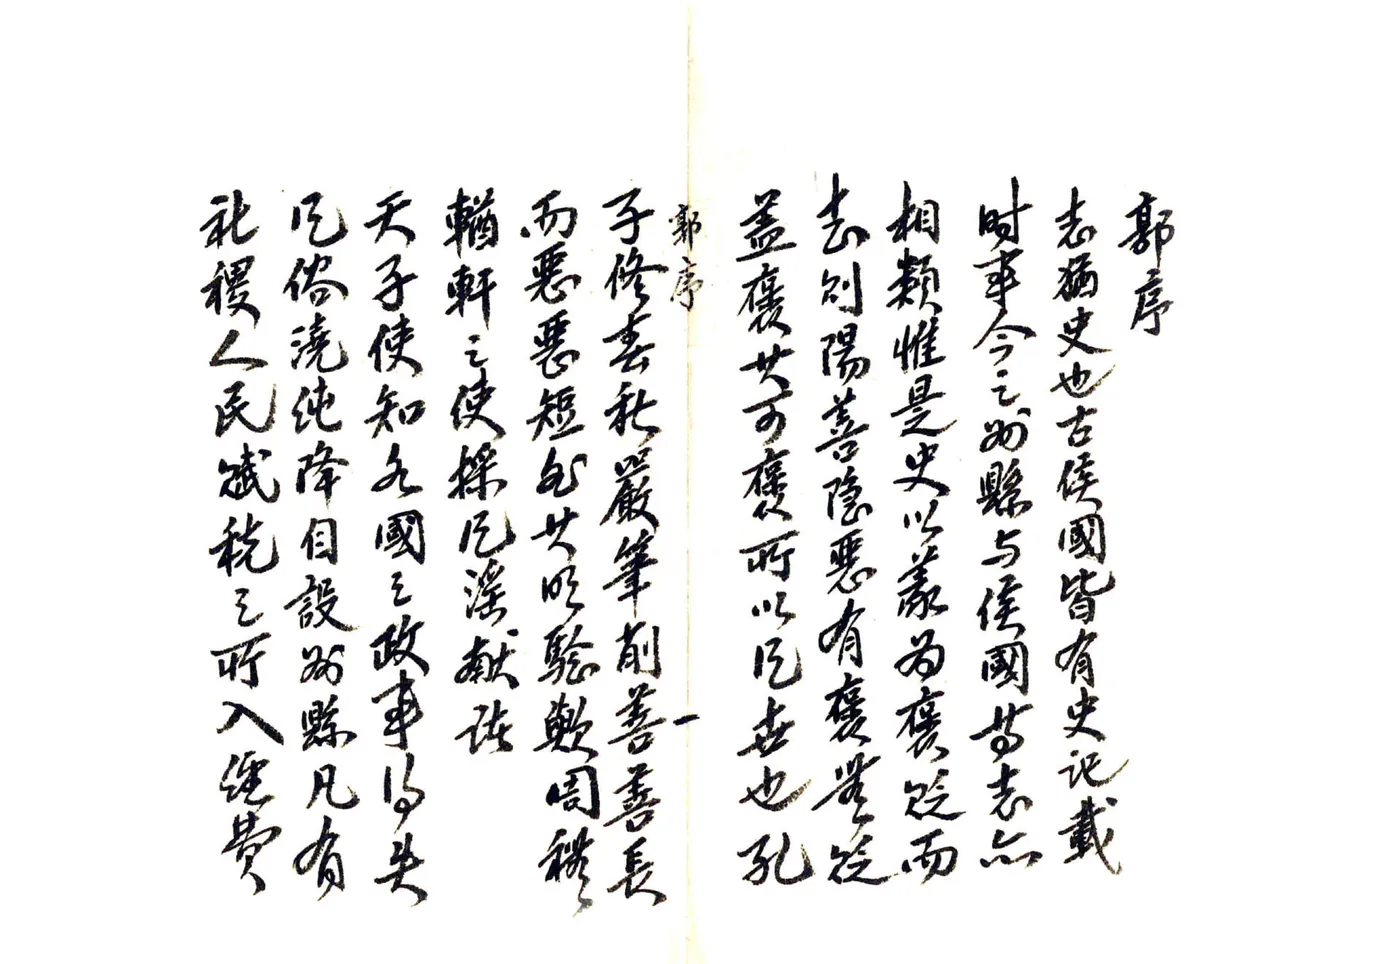 郭序
志猶史也古侯國皆有史記載
時事今之州縣与侯國等志亦
相類惟是史以義為褒貶而
志則陽善隐惡有褒無貶
盖褒其可褒所以风世也孔
郭序
一
子修春秋嚴筆削善善長
而惡惡短於其明驗歟周禮
輶軒之使採风謡献諸
天子使知各國之政事得失
风俗澆純降自設州縣凡有
社稷人民賦税之所入經費